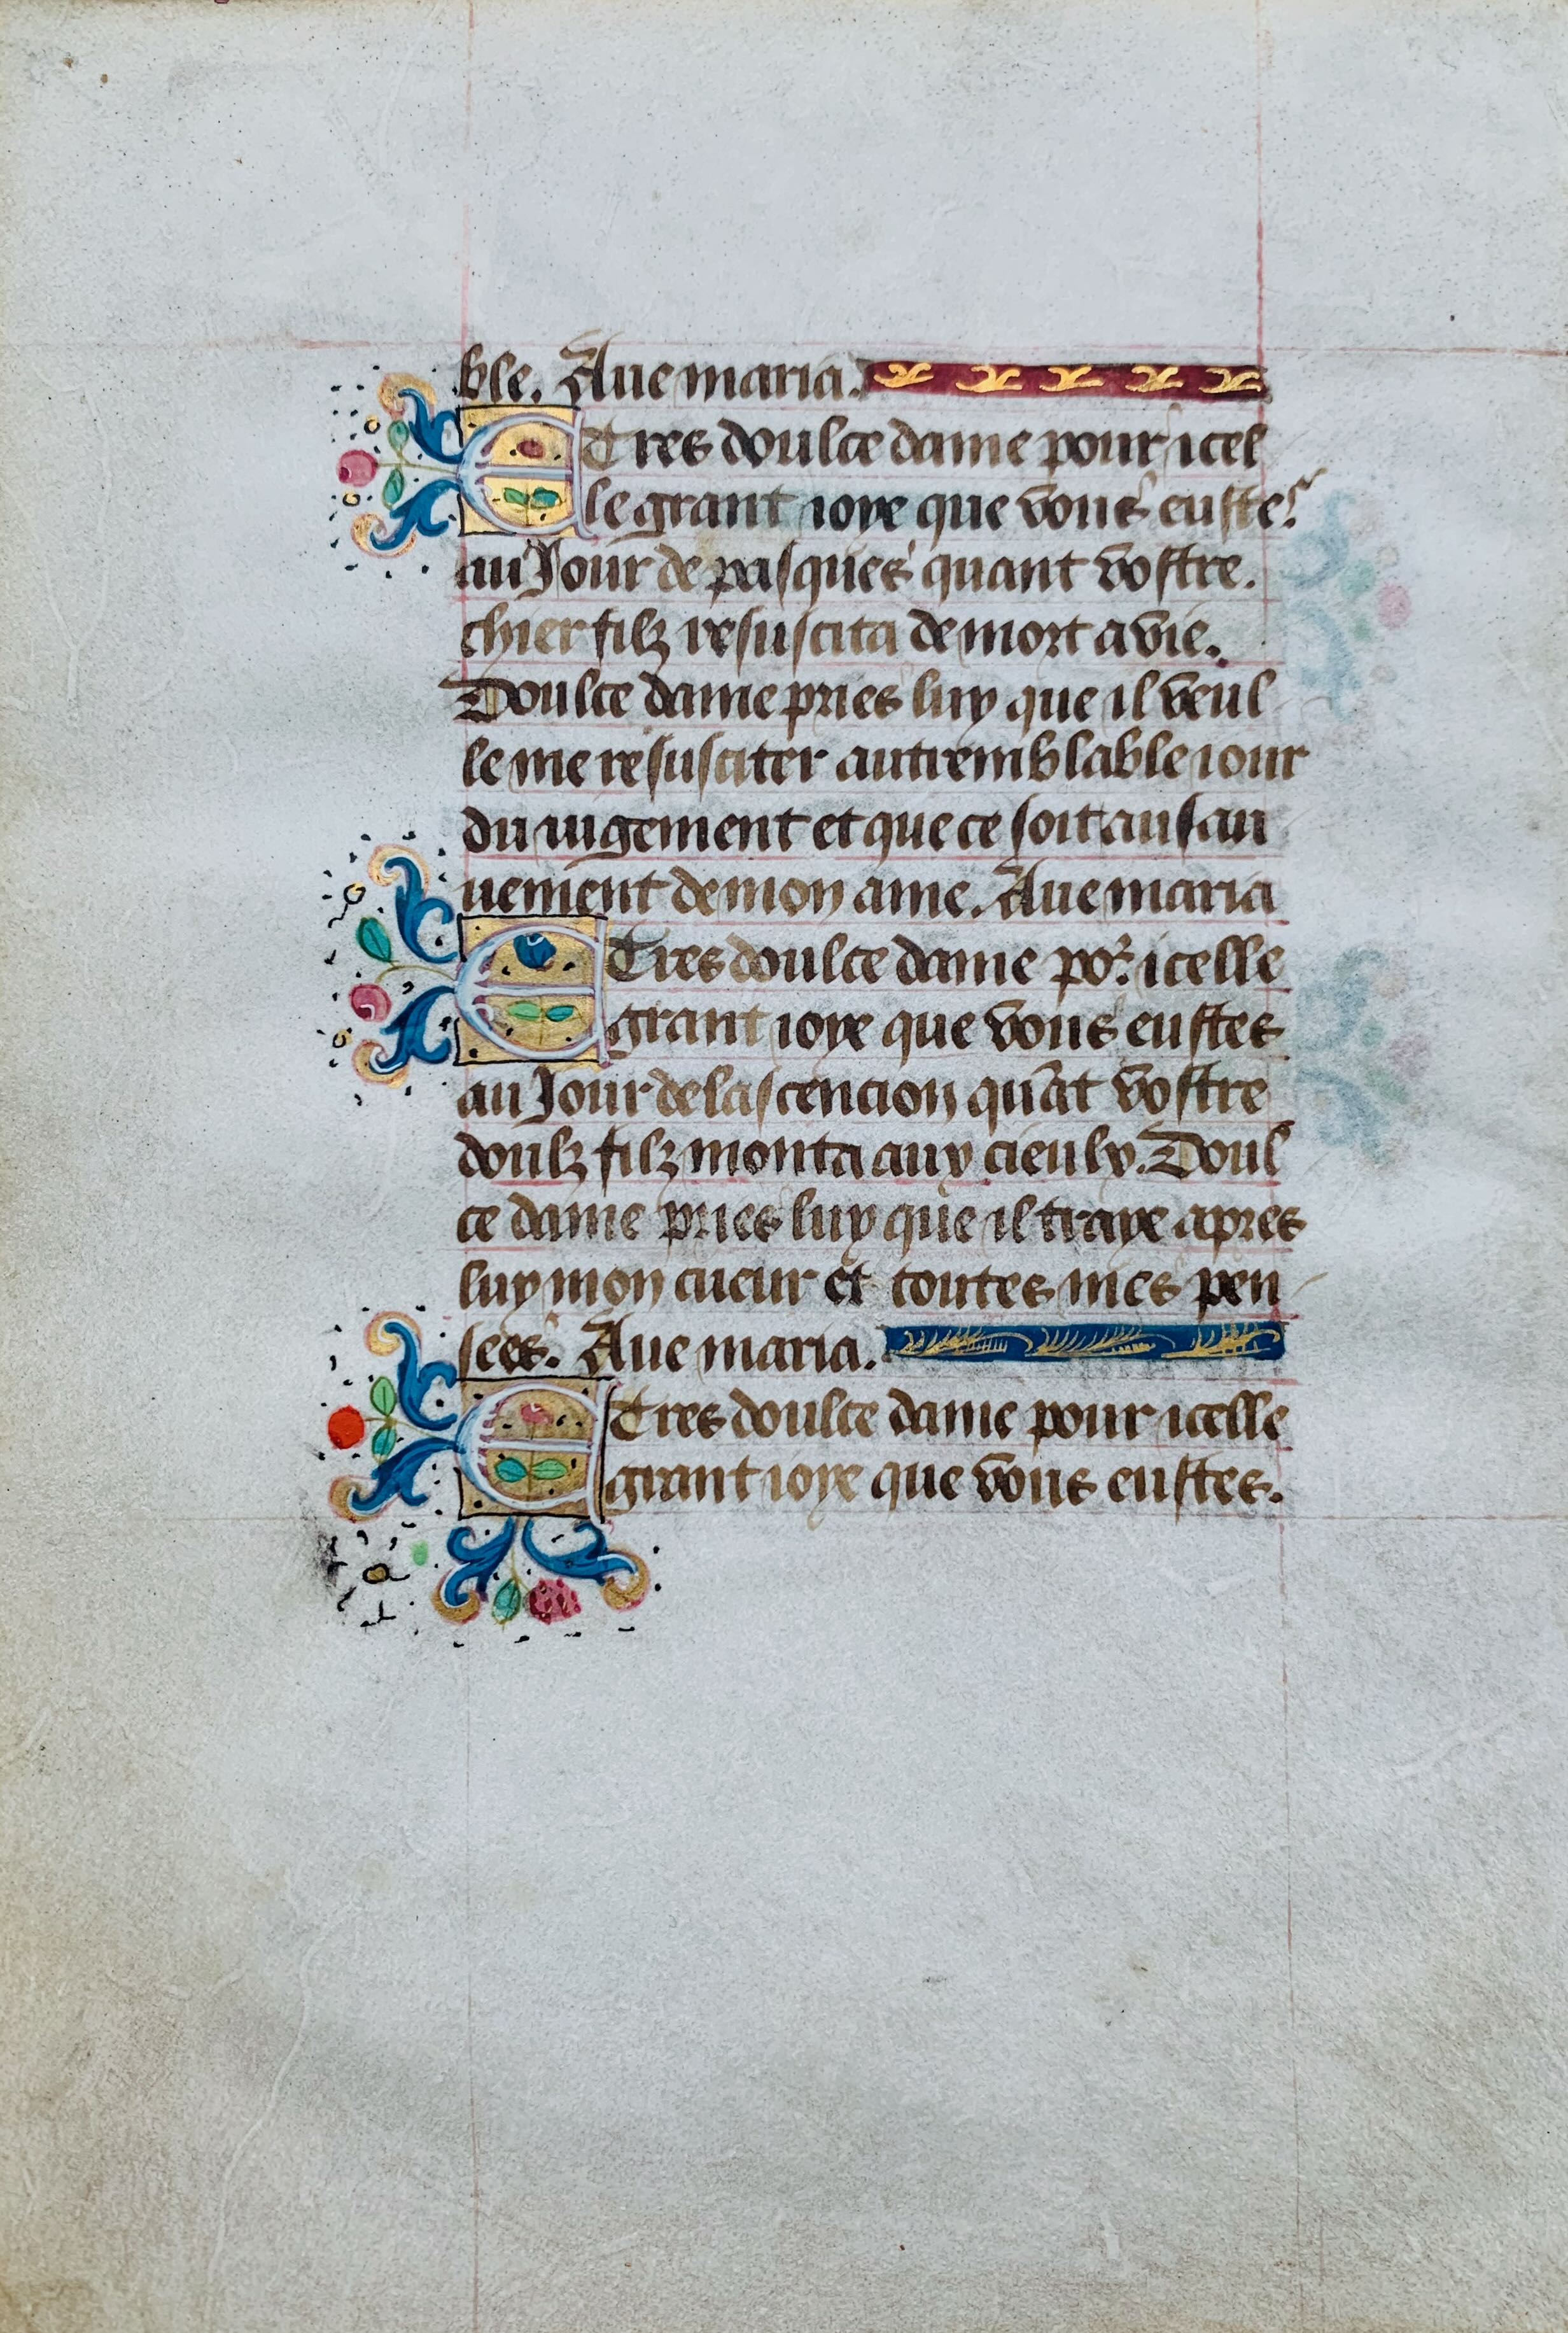 ble. Aue maria.
E Tres doulce dame pour icel
le grant ioye que vous eustes
au Jour de pasques quant vostre.
chier filz resuscita de mort a vie.
Doulce dame pries luy que il veul
le me resusciter au tremblable iour
du iugement et que ce soit au sau
uement de mon ame. Aue maria
E Tres doulce dame por icelle
grant ioye que vous eustes
au Jour de lascencion quāt vostre
doulz filz monta aux cieulx. Doul
ce dame pries luy que il traye apres
luy mon cueur et toutes mes pen
sees. Aue maria.
E Tres doulce dame pour icelle
grant ioye que vous eustes.